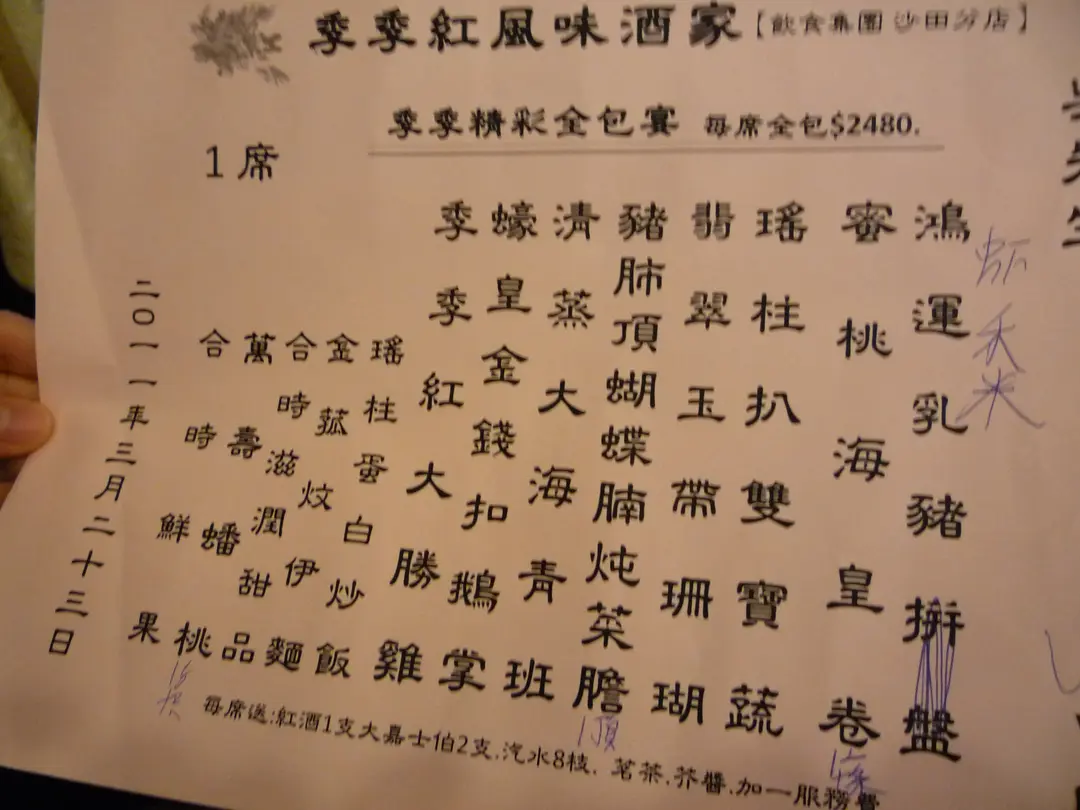 季季紅風味酒家【飲食集團 沙田分店】
季季精彩全包宴 每席全包$2480.
1席
鴻運乳豬拼盤
蜜桃海皇卷
瑤柱扒雙寶蔬
翡翠玉帶珊瑚
豬肺頂蝴蝶腩炖菜膽
清蒸大海青班
蠔皇金錢扣鵝掌
季季紅大勝雞
瑤柱蛋白炒飯
金菰炆伊麵
合時滋潤甜品
萬壽蟠桃
合時鮮果
二〇一一年三月二十三日
每席送:紅酒1支大嘉士伯2支.汽水8枝. 茗茶.芥醬.加一服務費